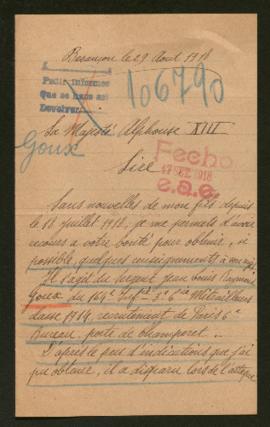 Besançon le 29 Août 1918
Pedir informes
Que se hace así
Devolver
106790
Sa Majesté Alphonse XIII
Goux
Sire
Fecho
17 SEP. 1918
e.a.c.
Sans nouvelles de mon fils depuis
le 18 Juillet 1918, je me permets d'avoir
recours à votre bonté pour obtenir, si
possible, quelques renseignements à son sujet.
Il s'agit du Sergent Jean Louis Raymond
Goux du 164e Inf. 2e Cie Mitrailleuses
classe 1914, recrutement de Paris 6e
Bureau, porte de Champerret.
D'après le peu d'indications que j'ai
pu obtenir, il a disparu lors de l'attaque